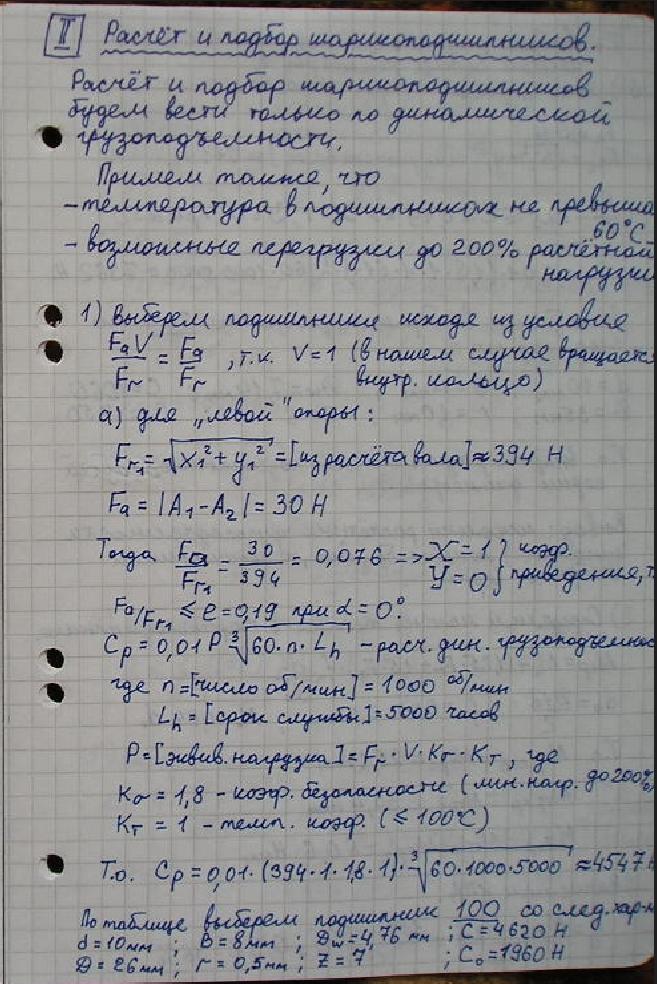 II Расчёт и подбор шарикоподшипников.
Расчёт и подбор шарикоподшипников
будем вести только по динамической
грузоподъемности.
Примем также, что
- температура в подшипниках не превыша
60°C
- возможные перегрузки до 200% расчётной
нагрузки
1) Выберем подшипники исходя из условие
FaV/Fr = Fa/Fr , т.к. V=1 (в нашем случае вращается
внутр. кольцо)
а) для „левой" опоры:
Fr1 = √(x1² + y1²) = [из расчёта вала] ≈ 394 Н
Fa = |A1 - A2| = 30 Н
Тогда Fa/Fr1 = 30/394 = 0,076 => X=1 } коэф.
Y=0 } приведения, т.
Fa/Fr1 ≤ e = 0,19 при α = 0°.
Cp = 0,01 P ∛(60·n·Lh) - расч. дин. грузоподъемнос
где n = [число об/мин] = 1000 об/мин
Lh = [срок службы] = 5000 часов
P = [эквив. нагрузка] = Fr · V · Kσ · KT , где
Kσ = 1,8 - коэф. безопасности ( нагр. до 200%)
KT = 1 - темп. коэф. (≤ 100°C)
Т.о. Cp = 0,01·(394·1·1,8·1)·∛(60·1000·5000) ≈ 4547 Н
По таблице выберем подшипник 100 со след. хар-м
d = 10 мм ; B = 8 мм ; Dw = 4,76 мм ; C = 4620 Н
D = 26 мм ; r = 0,5 мм ; Z = 7 ; C0 = 1960 Н